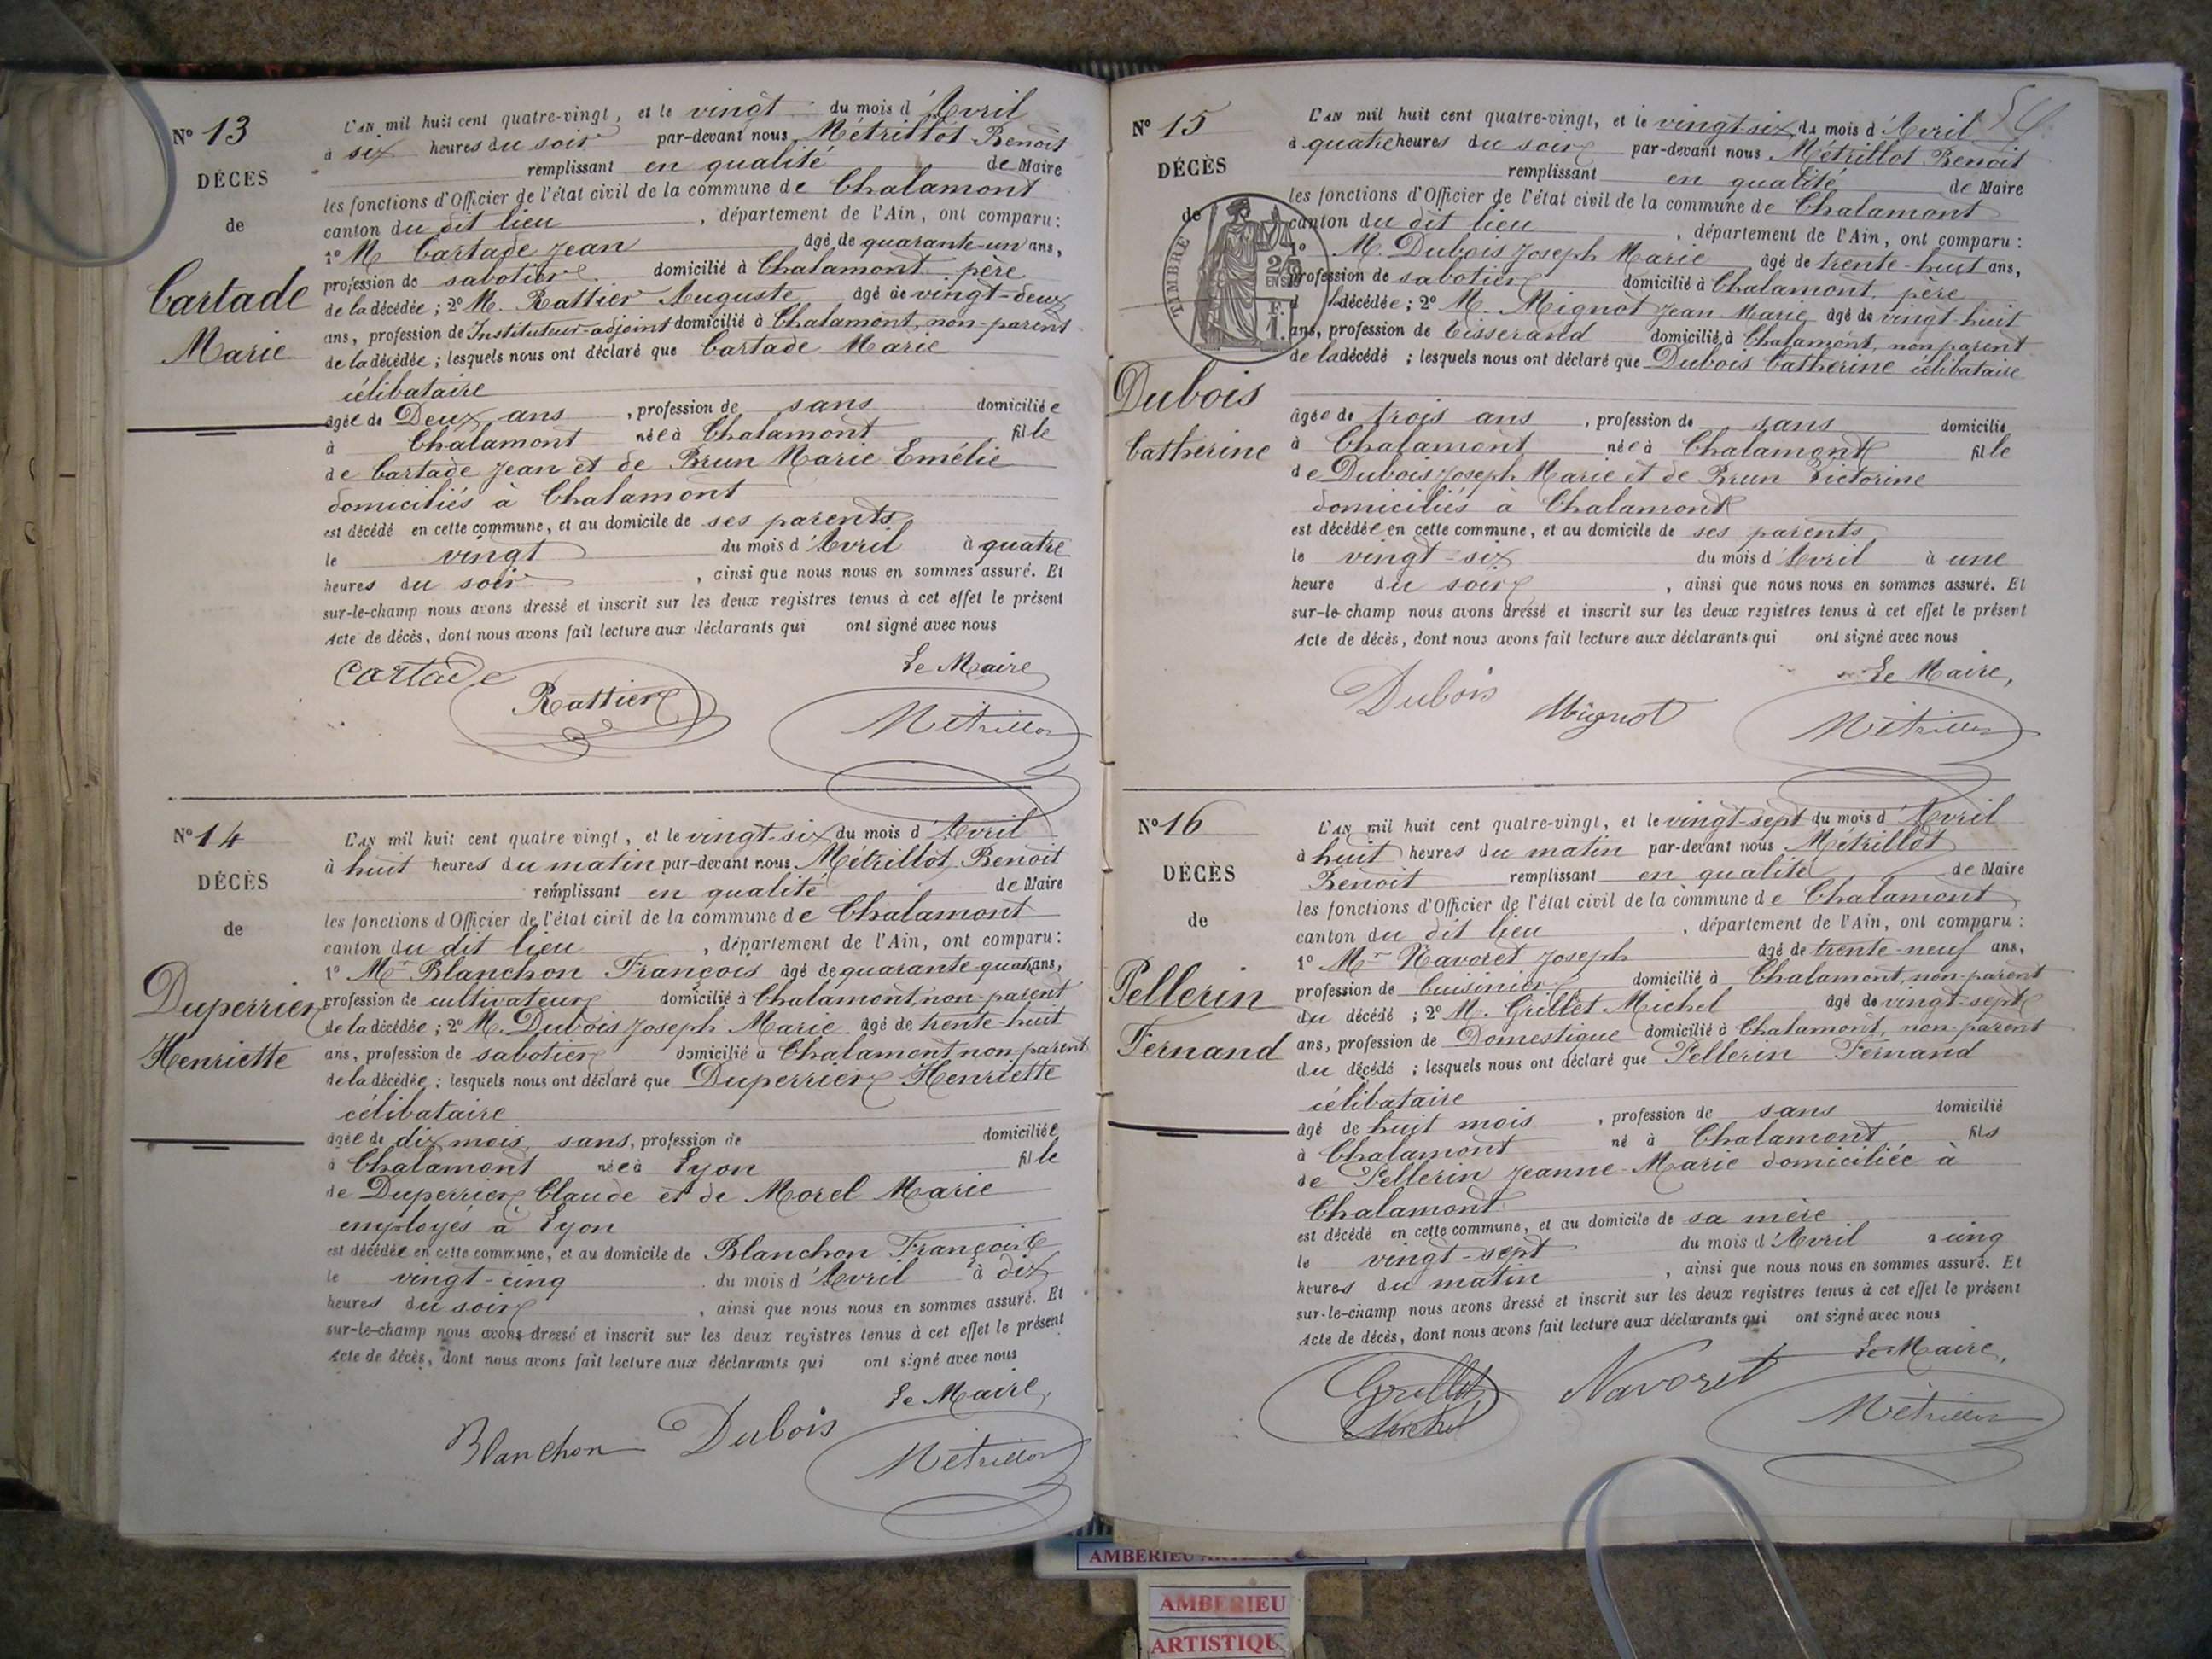 N° 13
DÉCÈS
de
Cartade
Marie
L'AN mil huit cent quatre-vingt, et le vingt du mois d'Avril
à six heures du soir par-devant nous Métrillot Benoit
remplissant en qualité de Maire
les fonctions d'Officier de l'état civil de la commune de Chalamont
canton du dit lieu, département de l'Ain, ont comparu:
1° M Cartade Jean âgé de quarante-un ans,
profession de sabotier domicilié à Chalamont père
de la décédée; 2° M. Rattier Auguste âgé de vingt-deux
ans, profession de Instituteur-adjoint domicilié à Chalamont, non-parent
de la décédée; lesquels nous ont déclaré que Cartade Marie
célibataire
âgée de Deux ans, profession de sans domiciliée
à Chalamont née à Chalamont fille
de Cartade Jean et de Brun Marie Emélie
domiciliés à Chalamont
est décédé en cette commune, et au domicile de ses parents
le vingt du mois d'Avril à quatre
heures du soir, ainsi que nous nous en sommes assuré. Et
sur-le-champ nous avons dressé et inscrit sur les deux registres tenus à cet effet le présent
Acte de décès, dont nous avons fait lecture aux déclarants qui ont signé avec nous
Le Maire
Cartade
Rattier
Métrillot
N° 14
DÉCÈS
de
Duperrier
Henriette
L'AN mil huit cent quatre vingt, et le vingt-six du mois d'Avril
à huit heures du matin par-devant nous Métrillot Benoit
remplissant en qualité de Maire
les fonctions d'Officier de l'état civil de la commune de Chalamont
canton du dit lieu, département de l'Ain, ont comparu:
1° Mr Blanchon François âgé de quarante-quatre ans,
profession de cultivateur domicilié à Chalamont, non-parent
de la décédée; 2° M. Dubois Joseph Marie âgé de trente-huit
ans, profession de sabotier domicilié à Chalamont non-parent
de la décédée; lesquels nous ont déclaré que Duperrier Henriette
célibataire
âgée de dix mois sans, profession de domiciliée
à Chalamont née à Lyon fille
de Duperrier Claude et de Morel Marie
employés à Lyon
est décédée en cette commune, et au domicile de Blanchon François
le vingt-cinq du mois d'Avril à dix
heures du soir, ainsi que nous nous en sommes assuré. Et
sur-le-champ nous avons dressé et inscrit sur les deux registres tenus à cet effet le présent
Acte de décès, dont nous avons fait lecture aux déclarants qui ont signé avec nous
Le Maire,
Blanchon Dubois
Métrillot
N° 15
DÉCÈS
de
TIMBRE
Dubois
Catherine
L'AN mil huit cent quatre-vingt, et le vingt-six du mois d'Avril
à quatre heures du soir par-devant nous Métrillot Benoit
remplissant en qualité de Maire
les fonctions d'Officier de l'état civil de la commune de Chalamont
canton du dit lieu, département de l'Ain, ont comparu:
1° M. Dubois Joseph Marie âgé de trente-huit ans,
profession de sabotier domicilié à Chalamont, père
décédée; 2° M. Mignot Jean Marie âgé de vingt-huit
ans, profession de Tisserand domicilié à Chalamont, non parent
de la décédé; lesquels nous ont déclaré que Dubois Catherine célibataire
âgée de trois ans, profession de sans domicilié
à Chalamont née à Chalamont fille
de Dubois Joseph Marie et de Brun Victorine
domiciliés à Chalamont
est décédée en cette commune, et au domicile de ses parents
le vingt-six du mois d'Avril à une
heure du soir, ainsi que nous nous en sommes assuré. Et
sur-le-champ nous avons dressé et inscrit sur les deux registres tenus à cet effet le présent
Acte de décès, dont nous avons fait lecture aux déclarants qui ont signé avec nous
Le Maire,
Dubois Mignot
Métrillot
N° 16
DÉCÈS
de
Pellerin
Fernand
L'AN mil huit cent quatre-vingt, et le vingt-sept du mois d'Avril
à huit heures du matin par-devant nous Métrillot
Benoit remplissant en qualité de Maire
les fonctions d'Officier de l'état civil de la commune de Chalamont
canton du dit lieu, département de l'Ain, ont comparu:
1° Mr Navoret Joseph âgé de trente-neuf ans,
profession de Cuisinier domicilié à Chalamont, non-parent
du décédé; 2° M. Grillet Michel âgé de vingt-sept
ans, profession de Domestique domicilié à Chalamont, non-parent
du décédé; lesquels nous ont déclaré que Pellerin Fernand
célibataire
âgé de huit mois, profession de sans domicilié
à Chalamont né à Chalamont fils
de Pellerin Jeanne-Marie domiciliée à
Chalamont
est décédé en cette commune, et au domicile de sa mère
le vingt-sept du mois d'Avril à cinq
heures du matin, ainsi que nous nous en sommes assuré. Et
sur-le-champ nous avons dressé et inscrit sur les deux registres tenus à cet effet le présent
Acte de décès, dont nous avons fait lecture aux déclarants qui ont signé avec nous
Le Maire,
Grillet Navoret
Michel
Métrillot
AMBERIEU
AMBERIEU
ARTISTIQU